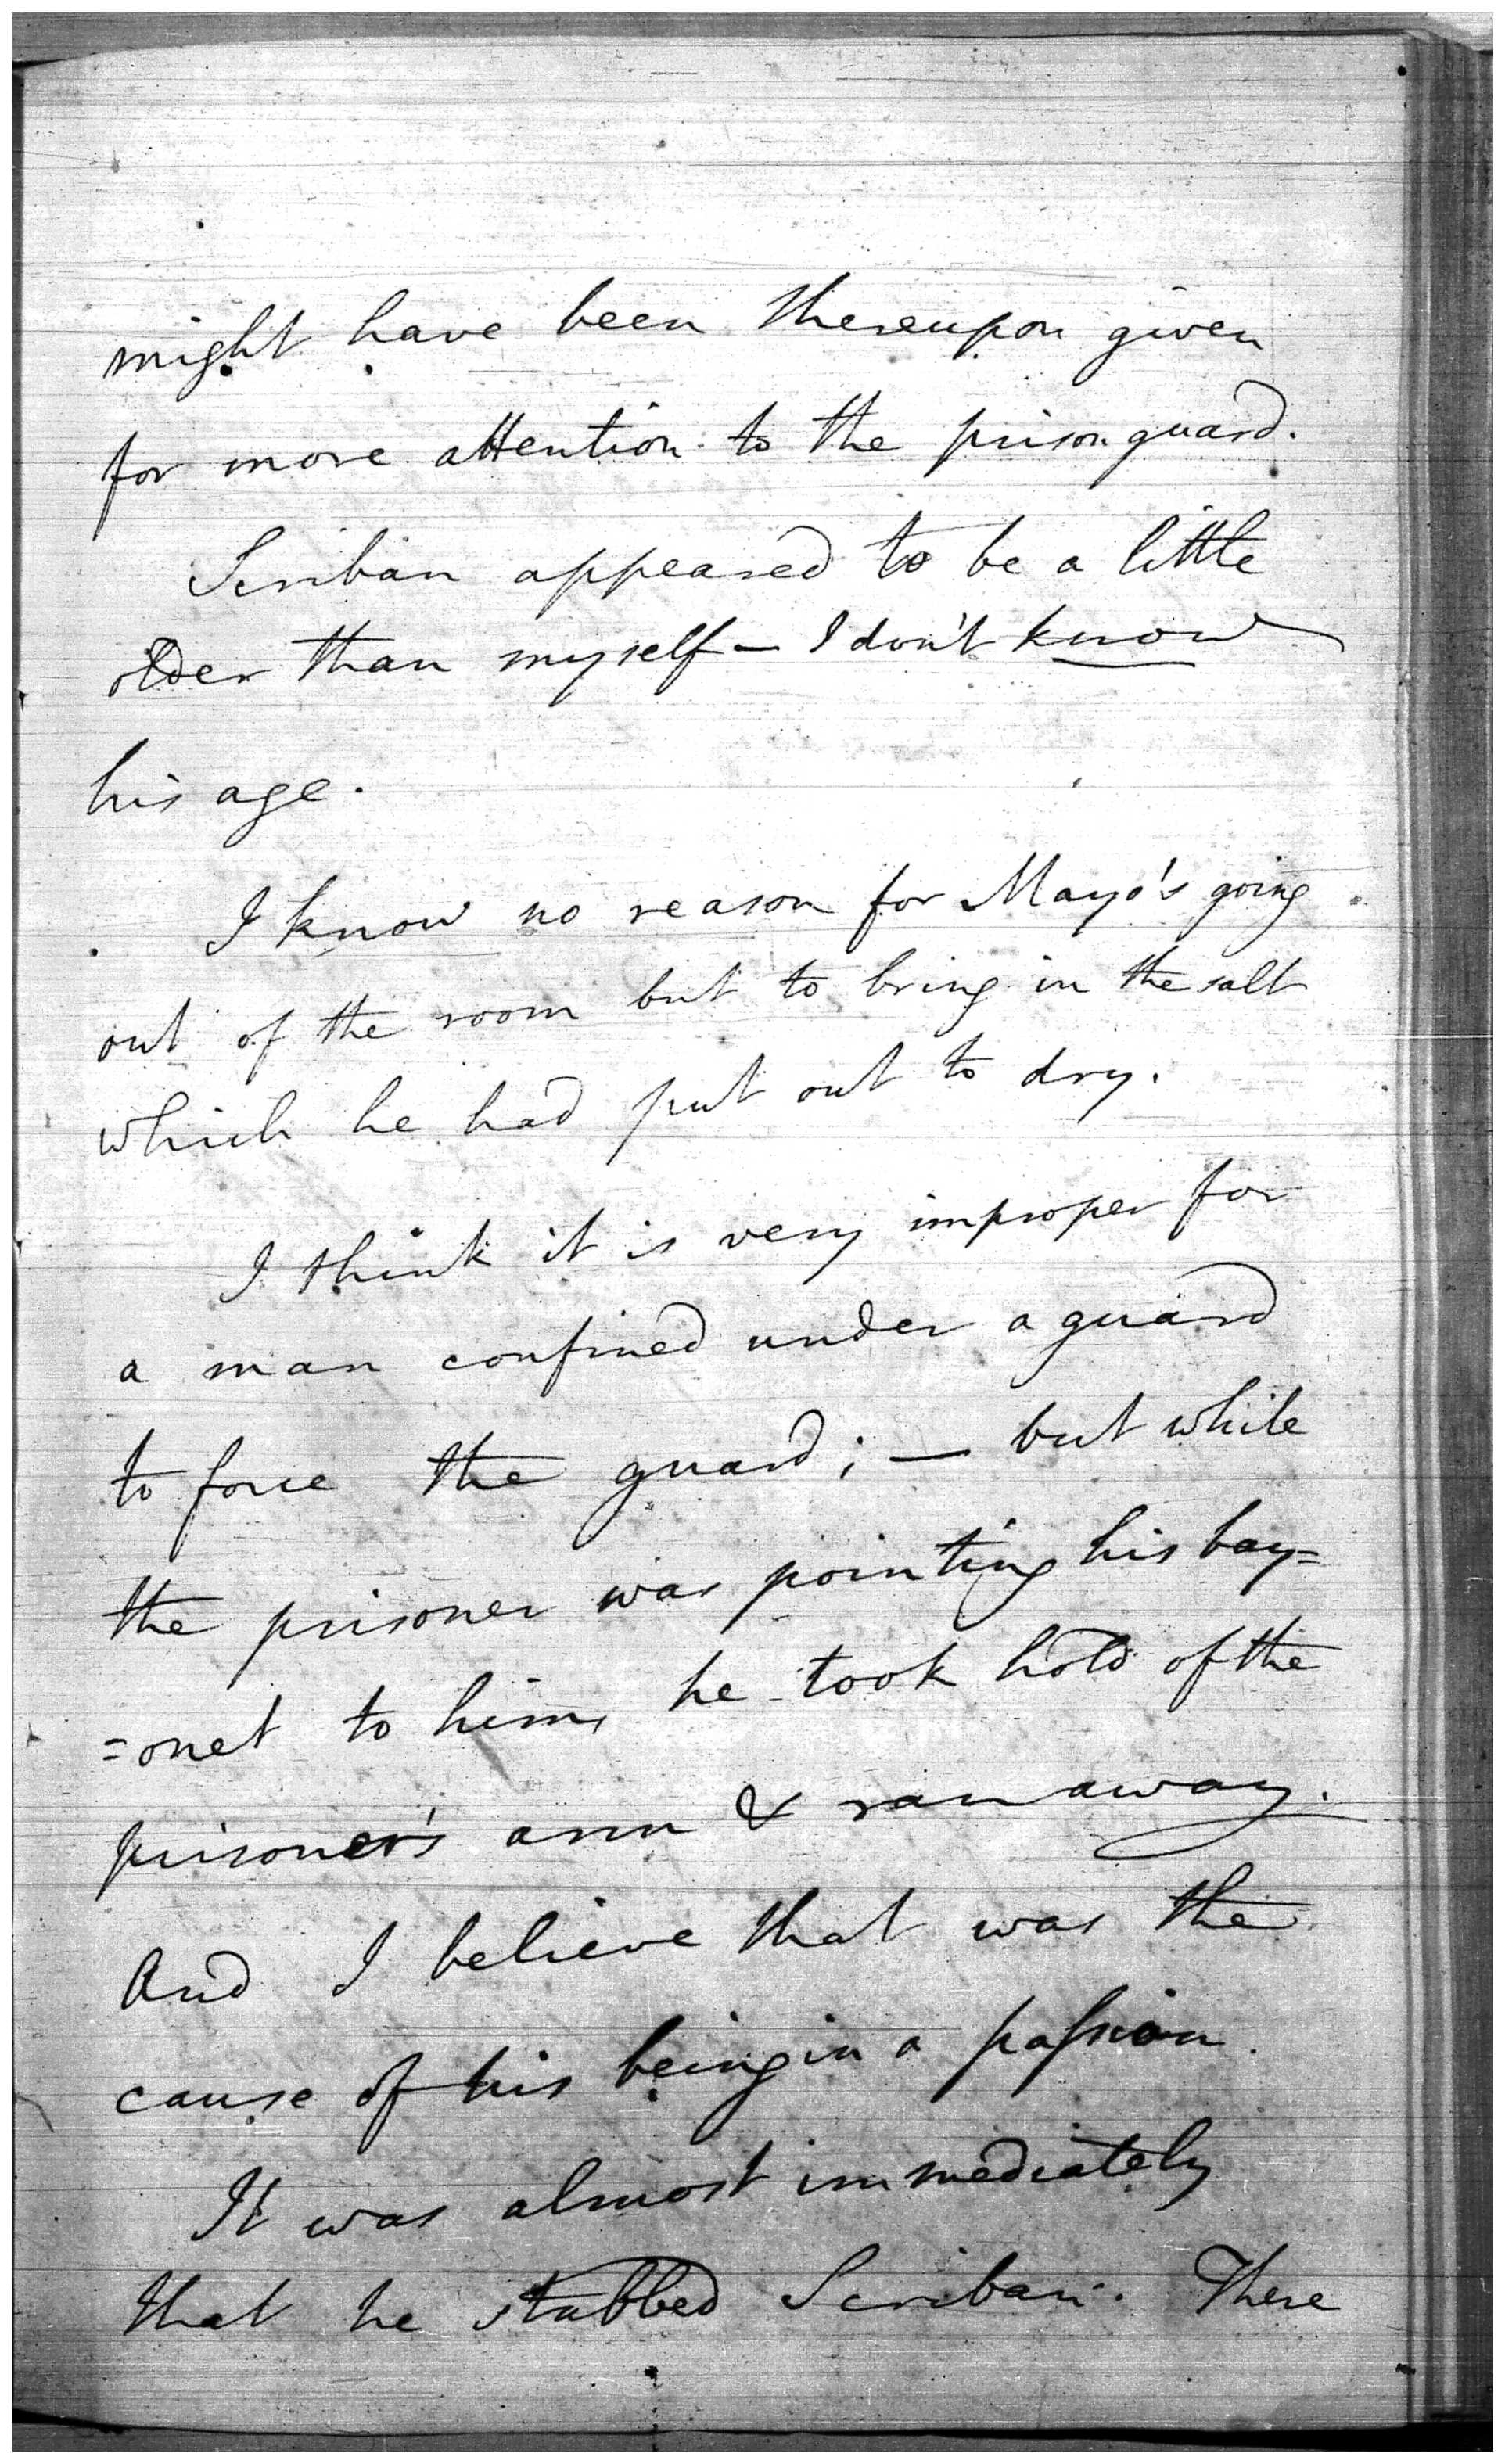 might have been thereupon given
for more attention to the prison guard.
Scriban appeared to be a little
older than myself — I don't know
his age.
I know no reason for Mayo's going
out of the room but to bring in the salt
which he had put out to dry.
I think it is very improper for
a man confined under a guard
to force the guard; — but while
the prisoner was pointing his bay=
=onet to him, he took hold of the
prisoner's arm & ran away.
And I believe that was the
cause of his being in a passion.
It was almost immediately
that he stabbed Scriban. There